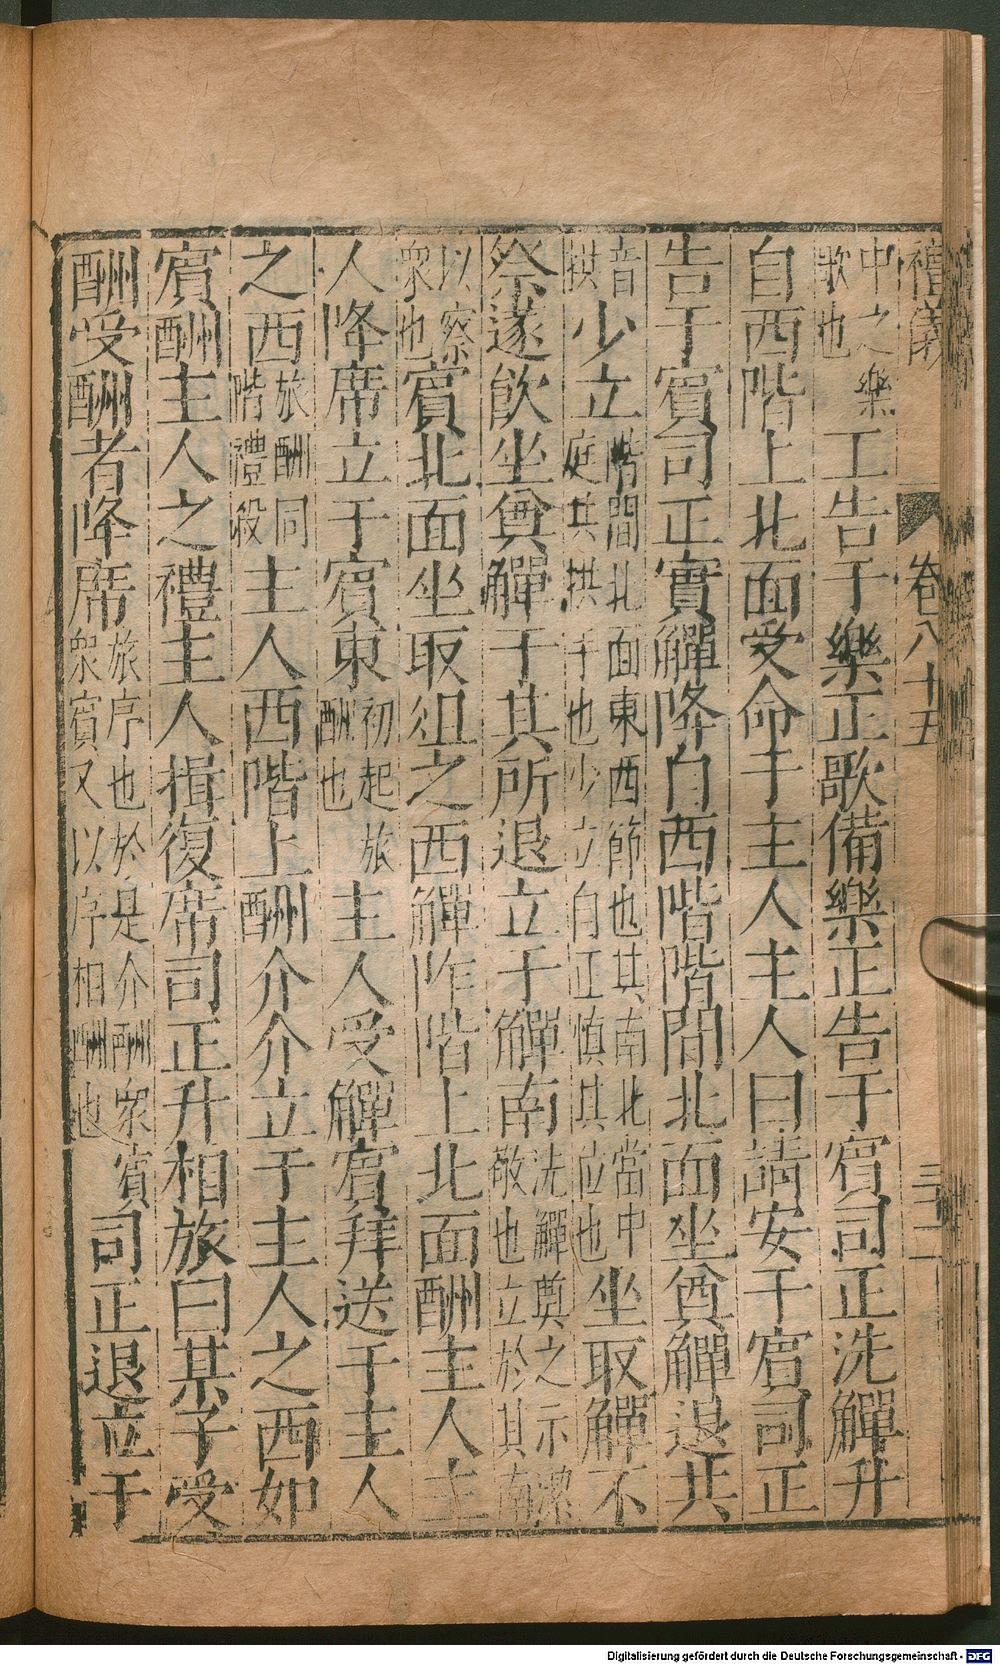 禮儀 卷八十五 三二
中之樂歌也工告于樂正歌備樂正告于賓司正洗觶升
自西階上北面受命于主人主人曰請安于賓司正
告于賓司正實觶降自西階階間北面坐奠觶退共
音拱少立階間北面東西節也其南北當中庭共拱手也少立自正慎其位也坐取觶不
祭遂飲坐奠觶于其所退立于觶南洗觶奠之示潔敬也立於其南
以察衆也賓北面坐取俎之西觶阼階上北面酬主人主
人降席立于賓東初起旅酬也主人受觶賓拜送于主人
之西旅酬同階禮殺主人西階上酬介介立于主人之西如
賓酬主人之禮主人揖復席司正升相旅曰某子受
酬受酬者降席旅序也於是介酬衆賓衆賓又以序相酬也司正退立于
Digitalisierung gefördert durch die Deutsche Forschungsgemeinschaft - DFG